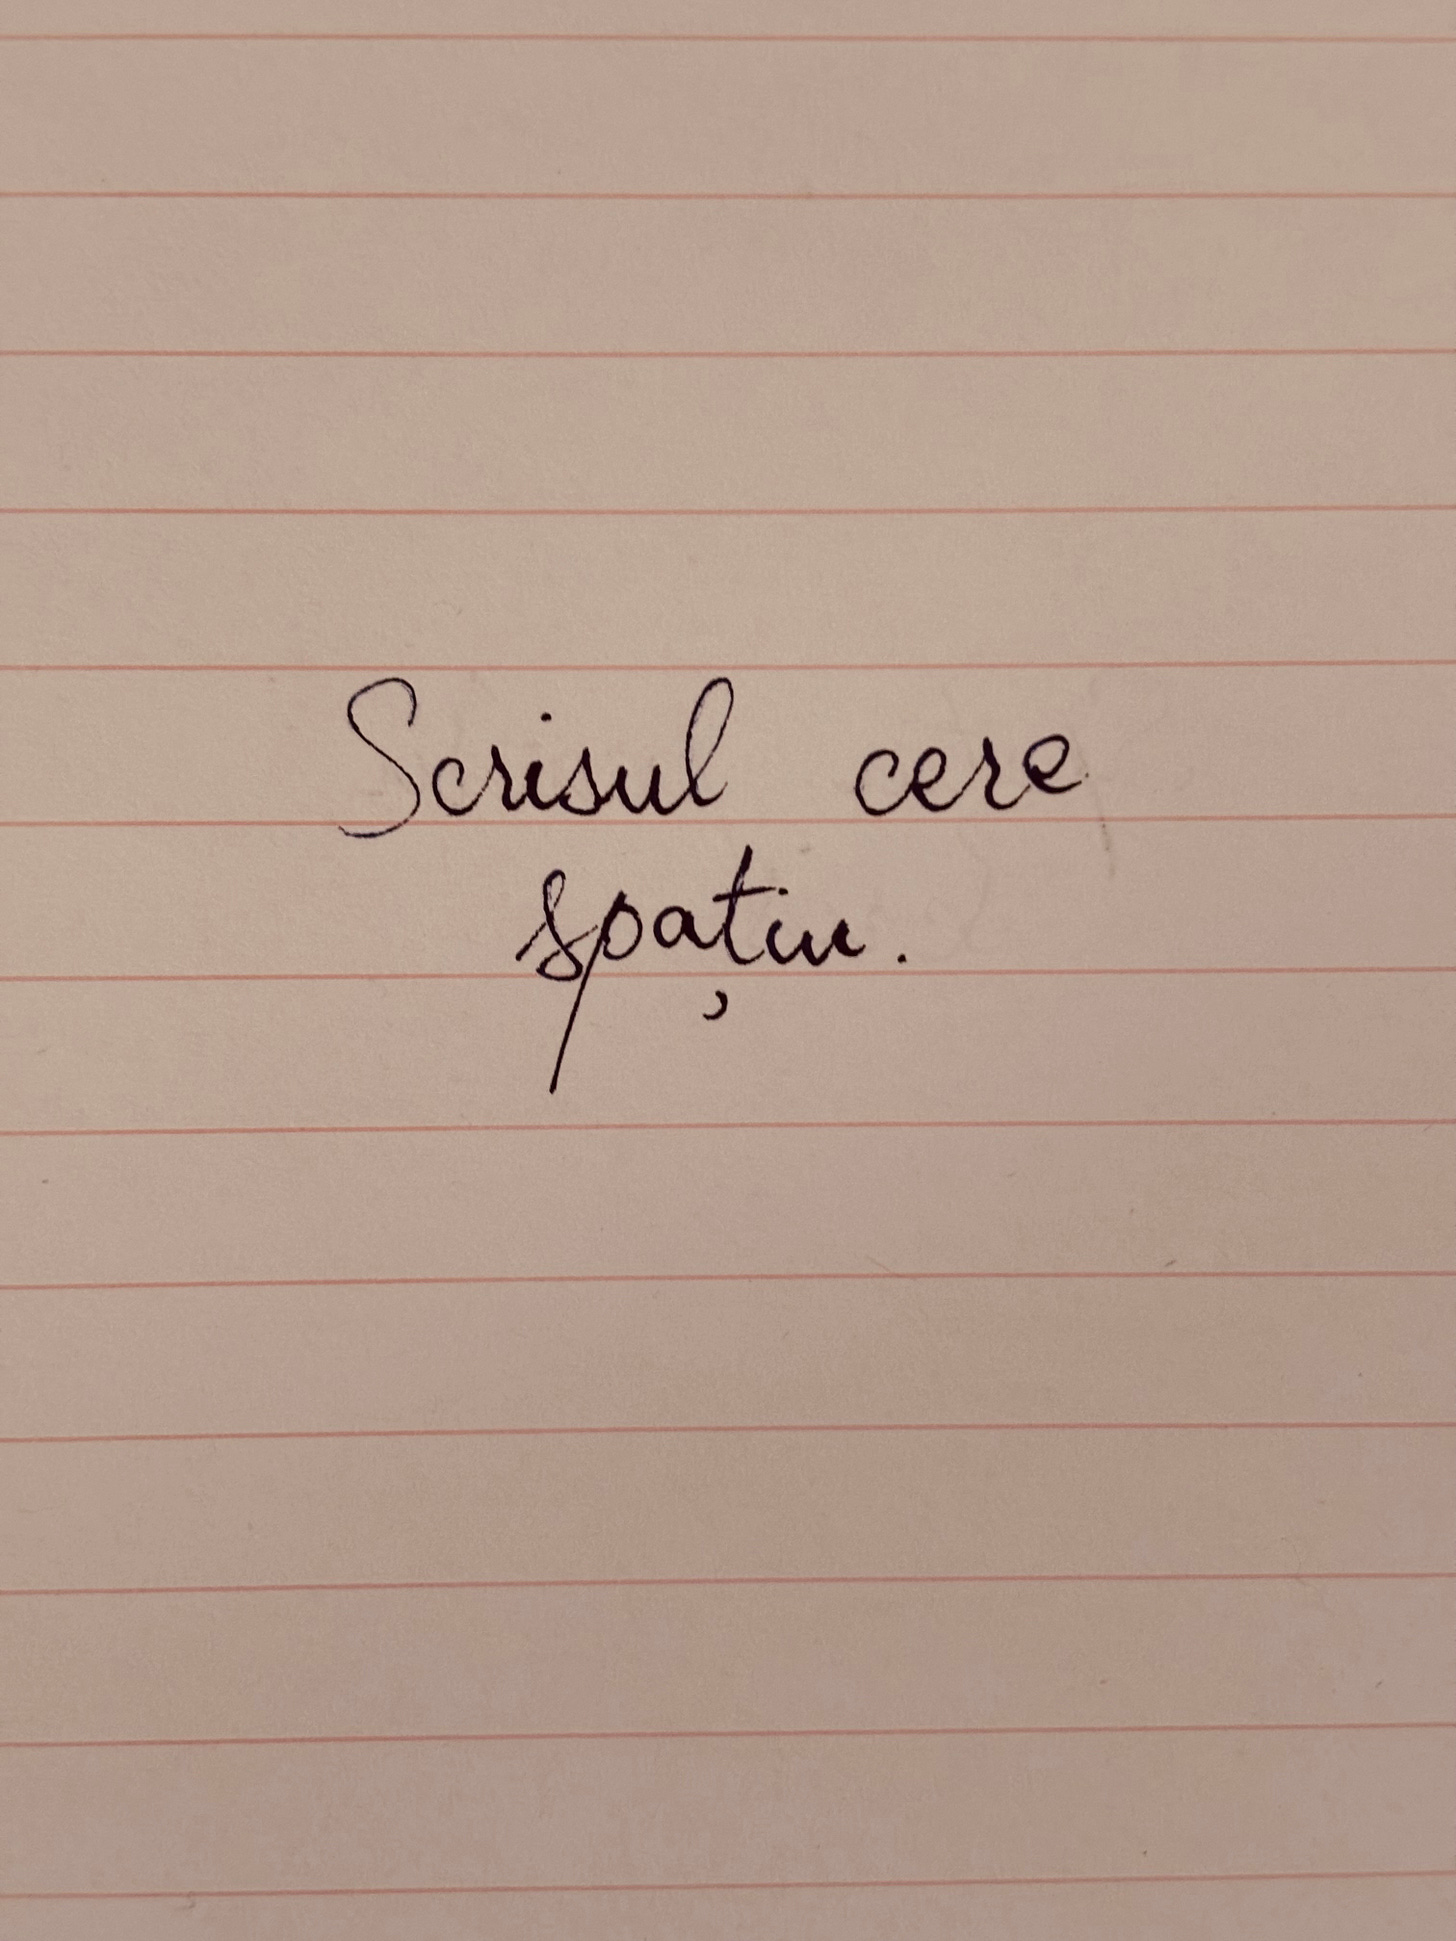 Scrisul cere
spațiu.